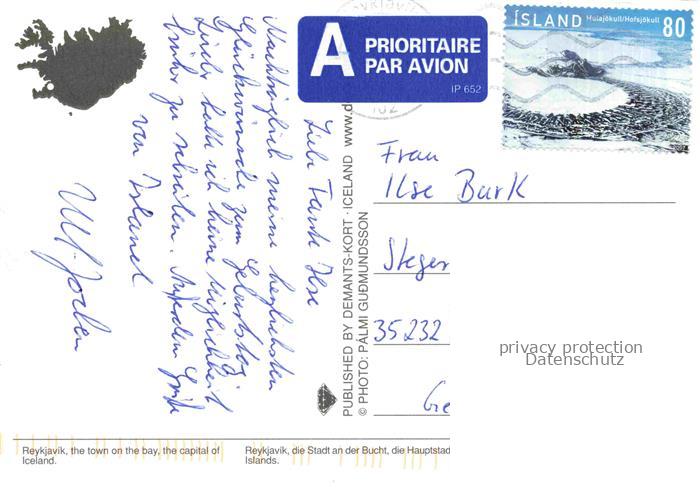 ÍSLAND Múlajökull/Hofsjökull 80
A PRIORITAIRE
PAR AVION
IP 652
Liebe Tante Ilse
Nachträglich meine herzlichsten
Glückwünsche zum Geburtstag
Leider hatte ich keine Möglichkeit
früher zu schreiben. Außerdem Grüße
von Island
Frau
Ilse Burk
Steger
35232
Ge
privacy protection
Datenschutz
PUBLISHED BY DEMANTS-KORT · ICELAND www.d
© PHOTO: PÁLMI GUÐMUNDSSON
Reykjavik, the town on the bay, the capital of
Iceland.
Reykjavik, die Stadt an der Bucht, die Hauptstad
Islands.